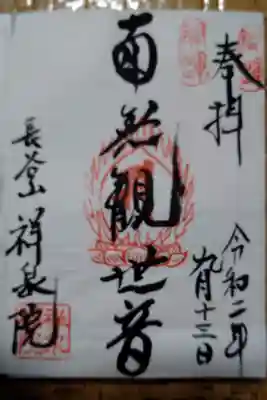 奉拝
令和二年
九月十三日
南無観世音
長谷山 祥泉院